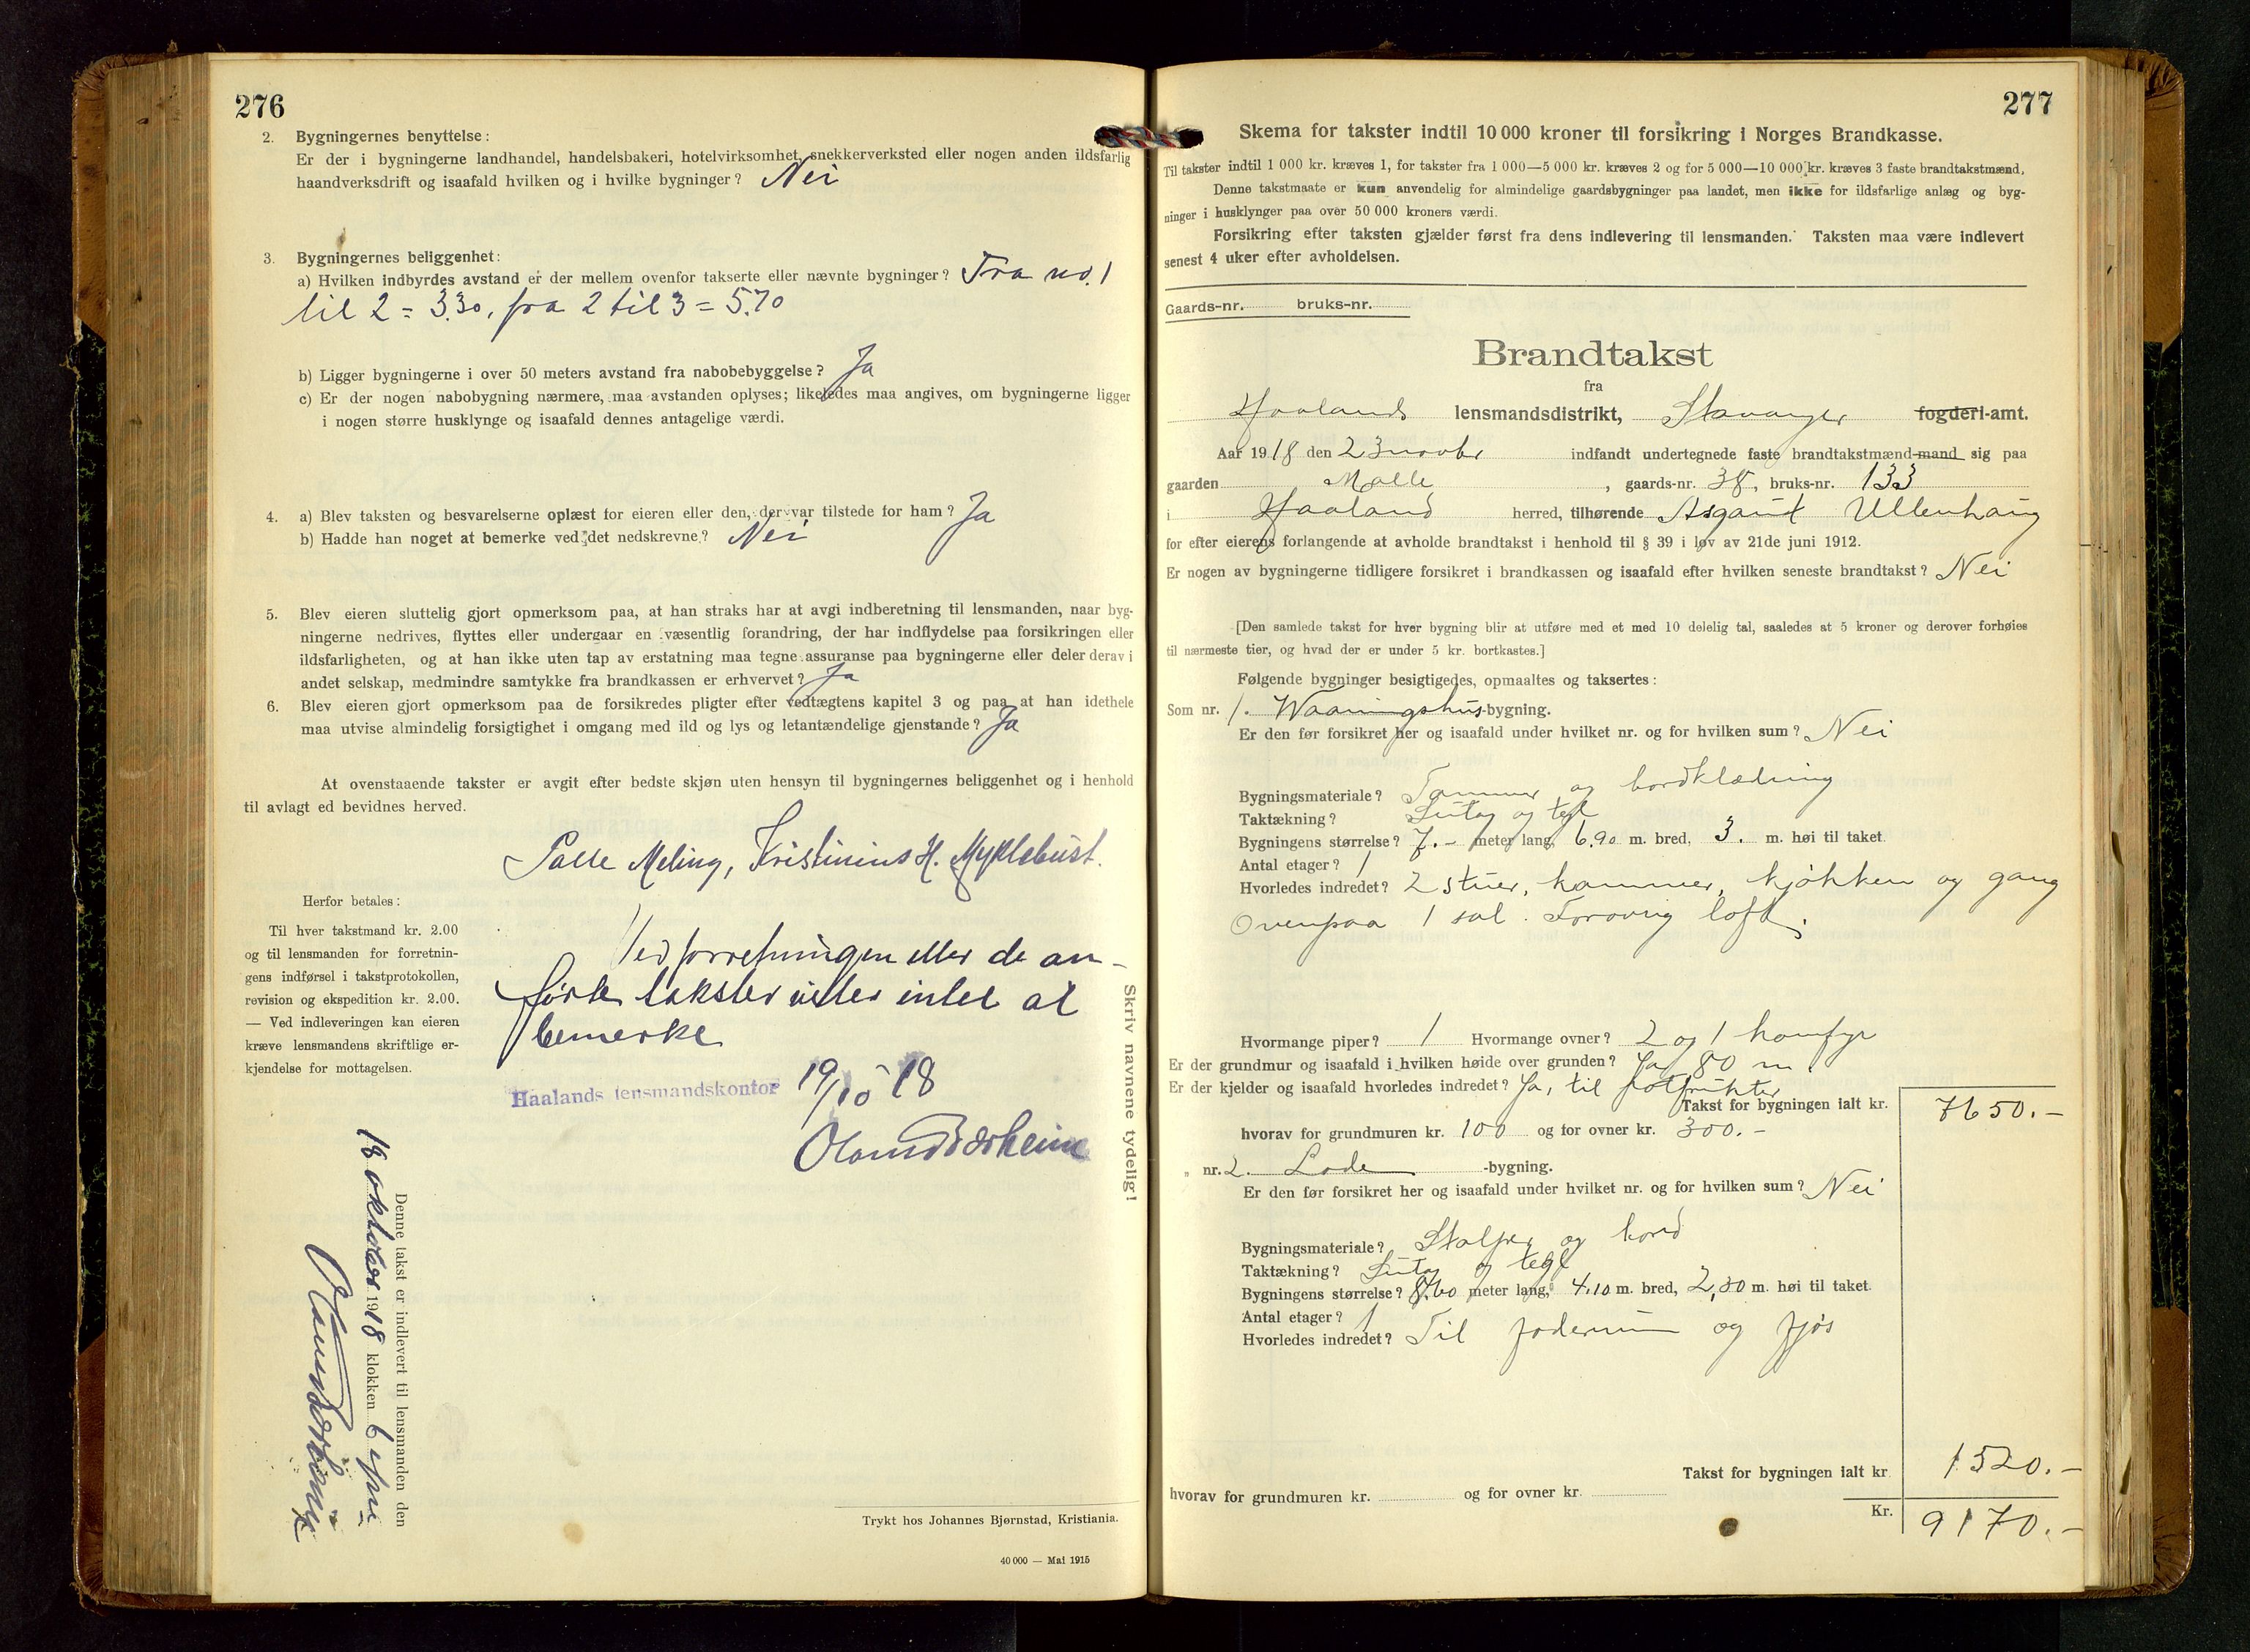 276
2. Bygningernes benyttelse:
Er der i bygningerne landhandel, handelsbakeri, hotelvirksomhet, snekkerverksted eller nogen anden ildsfarlig
haandverksdrift og isaafald hvilken og i hvilke bygninger? Nei
3. Bygningernes beliggenhet:
a) Hvilken indbyrdes avstand er der mellem ovenfor takserte eller nævnte bygninger? Fra no. 1
til 2 = 3.30, fra 2 til 3 = 5.70
b) Ligger bygningerne i over 50 meters avstand fra nabobebyggelse? Ja
c) Er der nogen nabobygning nærmere, maa avstanden oplyses; likeledes maa angives, om bygningerne ligger
i nogen større husklynge og isaafald dennes antagelige værdi.
4. a) Blev taksten og besvarelserne oplæst for eieren eller den, der var tilstede for ham? Ja
b) Hadde han noget at bemerke ved det nedskrevne? Nei
5. Blev eieren sluttelig gjort opmerksom paa, at han straks har at avgi indberetning til lensmanden, naar byg-
ningerne nedrives, flyttes eller undergaar en væsentlig forandring, der har indflydelse paa forsikringen eller
ildsfarligheten, og at han ikke uten tap av erstatning maa tegne assuranse paa bygningerne eller deler derav i
andet selskap, medmindre samtykke fra brandkassen er erhvervet? Ja
6. Blev eieren gjort opmerksom paa de forsikredes pligter efter vedtægtens kapitel 3 og paa at han idethele
maa utvise almindelig forsigtighet i omgang med ild og lys og letantændelige gjenstande? Ja
At ovenstaaende takster er avgit efter bedste skjøn uten hensyn til bygningernes beliggenhet og i henhold
til avlagt ed bevidnes herved.
Salle Meling, Kristinius H. Myklebust.
Herfor betales:
Til hver takstmand kr. 2.00
og til lensmanden for forretnin-
gens indførsel i takstprotokollen,
revision og ekspedition kr. 2.00.
— Ved indleveringen kan eieren
kræve lensmandens skriftlige er-
kjendelse for mottagelsen.
Ved forretningen eller de an-
førte takster intet at
bemerke
Haalands lensmandskontor 19/10 18
Skriv navnene tydelig!
Denne takst er indlevert til lensmanden den
18 oktober 1918 klokken 6
Trykt hos Johannes Bjørnstad, Kristiania.
40 000 — Mai 1915
277
Skema for takster indtil 10 000 kroner til forsikring i Norges Brandkasse.
Til takster indtil 1 000 kr. kræves 1, for takster fra 1 000—5 000 kr. kræves 2 og for 5 000—10 000 kr. kræves 3 faste brandtakstmænd.
Denne takstmaate er kun anvendelig for almindelige gaardsbygninger paa landet, men ikke for ildsfarlige anlæg og byg-
ninger i husklynger paa over 50 000 kroners værdi.
Forsikring efter taksten gjælder først fra dens indlevering til lensmanden. Taksten maa være indlevert
senest 4 uker efter avholdelsen.
Gaards-nr. bruks-nr.
Brandtakst
fra
Haalands lensmandsdistrikt, Stavanger fogderi-amt.
Aar 1918 den 23 novbr indfandt undertegnede faste brandtakstmænd-mand sig paa
gaarden Malle, gaards-nr. 38, bruks-nr. 133
i Haaland herred, tilhørende Asgaut Ullenhaug
for efter eierens forlangende at avholde brandtakst i henhold til § 39 i lov av 21de juni 1912.
Er nogen av bygningerne tidligere forsikret i brandkassen og isaafald efter hvilken seneste brandtakst? Nei
[Den samlede takst for hver bygning blir at utføre med et med 10 delelig tal, saaledes at 5 kroner og derover forhøies
til nærmeste tier, og hvad der er under 5 kr. bortkastes.]
Følgende bygninger besigtigedes, opmaaltes og taksertes:
Som nr. 1. Vaaningshus-bygning.
Er den før forsikret her og isaafald under hvilket nr. og for hvilken sum? Nei
Bygningsmateriale? Tømmer og bordklædning
Taktækning? Sutag og tegl
Bygningens størrelse? 7.- meter lang, 6.90 m. bred, 3. m. høi til taket.
Antal etager? 1
Hvorledes indredet? 2 stuer, kammer, kjøkken og gang
Ovenpaa 1 sal. Forøvrig loft.
Hvormange piper? 1 Hvormange ovner? 2 og 1 komfyr
Er der grundmur og isaafald i hvilken høide over grunden? Ja, 80 m.
Er der kjelder og isaafald hvorledes indredet? Ja, til potfrukter
Takst for bygningen ialt kr. 7650.-
hvorav for grundmuren kr. 100 og for ovner kr. 300.-
" nr. 2. Løde -bygning.
Er den før forsikret her og isaafald under hvilket nr. og for hvilken sum? Nei
Bygningsmateriale? Stolper og bord
Taktækning? Sutag og tegl
Bygningens størrelse? 8.60 meter lang, 4.10 m. bred, 2,30 m. høi til taket.
Antal etager? 1
Hvorledes indredet? Til foderrum og fjøs
Takst for bygningen ialt kr 1520.-
hvorav for grundmuren kr. og for ovner kr.
Kr. 9170.-